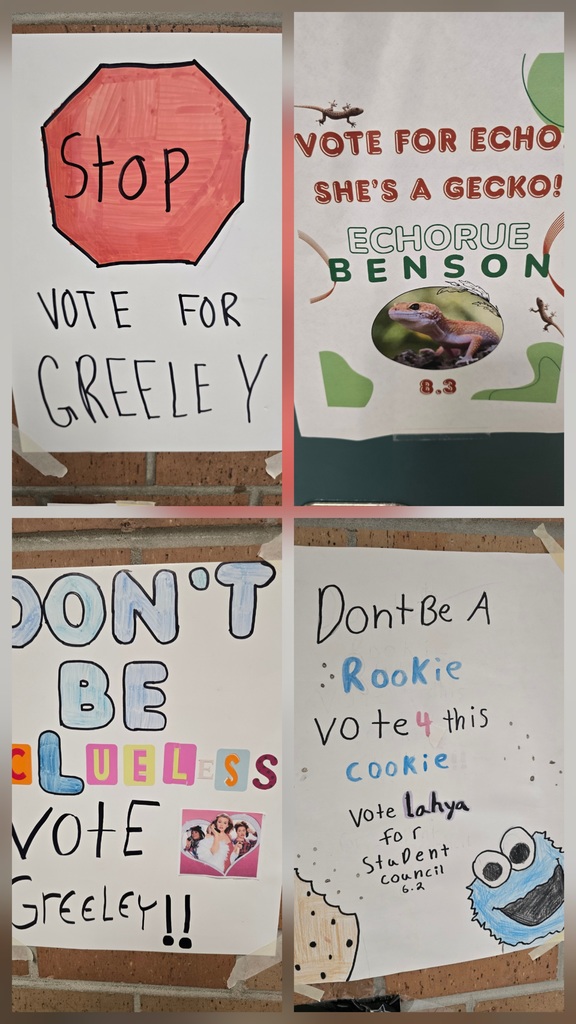 Stop
VOTE FOR
GREELEY
VOTE FOR ECHO
SHE'S A GECKO!
ECHORUE
BENSON
8.3
DON'T
BE
CLUELESS
VOTE
GREELEY!!
Dont Be A
Rookie
vote 4 this
cookie
vote Lahya
for
StuDent
council
6.2